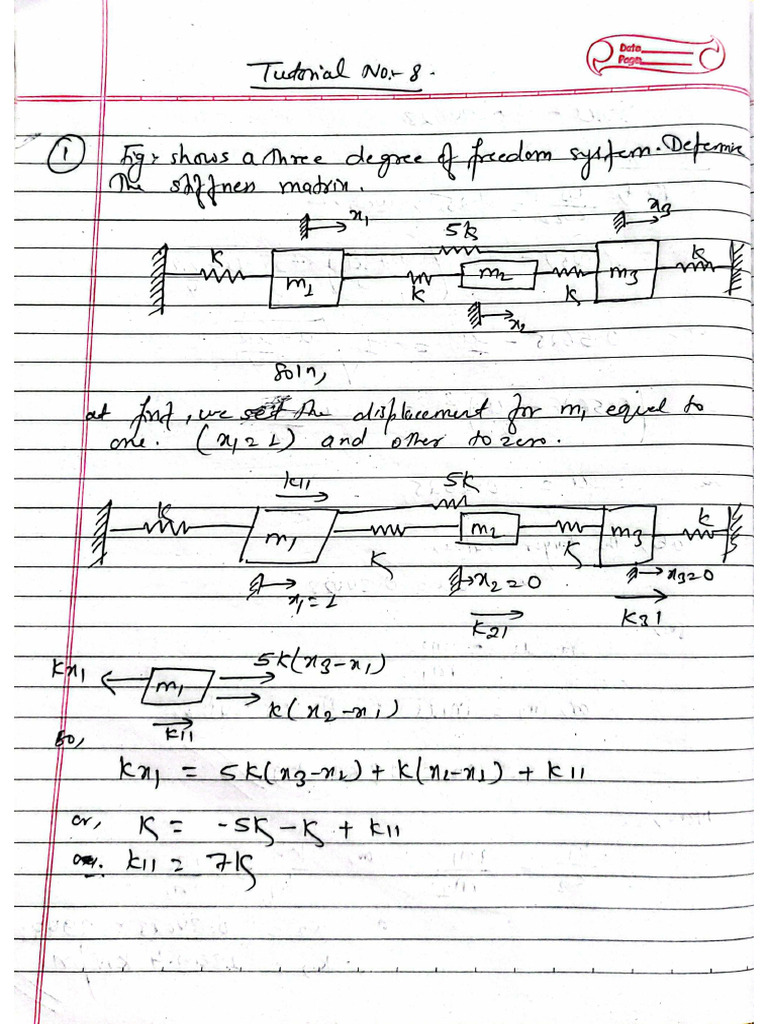 Date
Page
Tutorial No:- 8.
① Fig:- shows a three degree of freedom system. Determine
the stiffness matrix.
x1 x3
5k
k m1 k m2 k m3 k
x2
Soln,
at first, we set the displacement for m1 equal to
one. (x1=1) and other to zero.
k11 5k
k m1 k m2 k m3 k
x1=1 x2=0 x3=0
k21 k31
kx1 m1 5k(x3-x1)
k(x2-x1)
k11
So,
kx1 = 5k(x3-x2) + k(x2-x1) + k11
or, k = -5k-k + k11
or. k11 = 7k